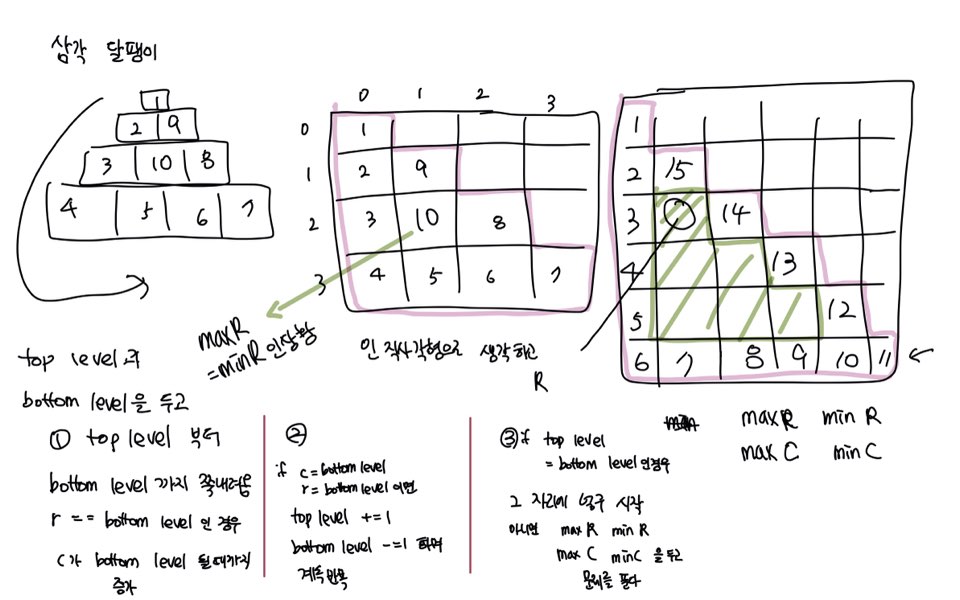 삼각 달팽이
1
2 9
3 10 8
4 5 6 7
0 1 2 3
0 1
1 2 9
2 3 10 8
3 4 5 6 7
maxR
= minR 인 상황
인 직사각형으로 생각하고
R
1
2 15
3 14
4 13
5 12
6 7 8 9 10 11
maxR minR
maxC minC
top level 과
bottom level을 두고
① top level 부터
bottom level 까지 쭉내려옴
r == bottom level 인 경우
c가 bottom level 될때까지
증가
②
if c = bottom level
r = bottom level 이면
top level += 1
bottom level -= 1 하며
계속 반복
③ if top level
= bottom level 인경우
그 자리에 넣구 시작
아니면 maxR minR
maxC minC 을 두고
문제를 풀다